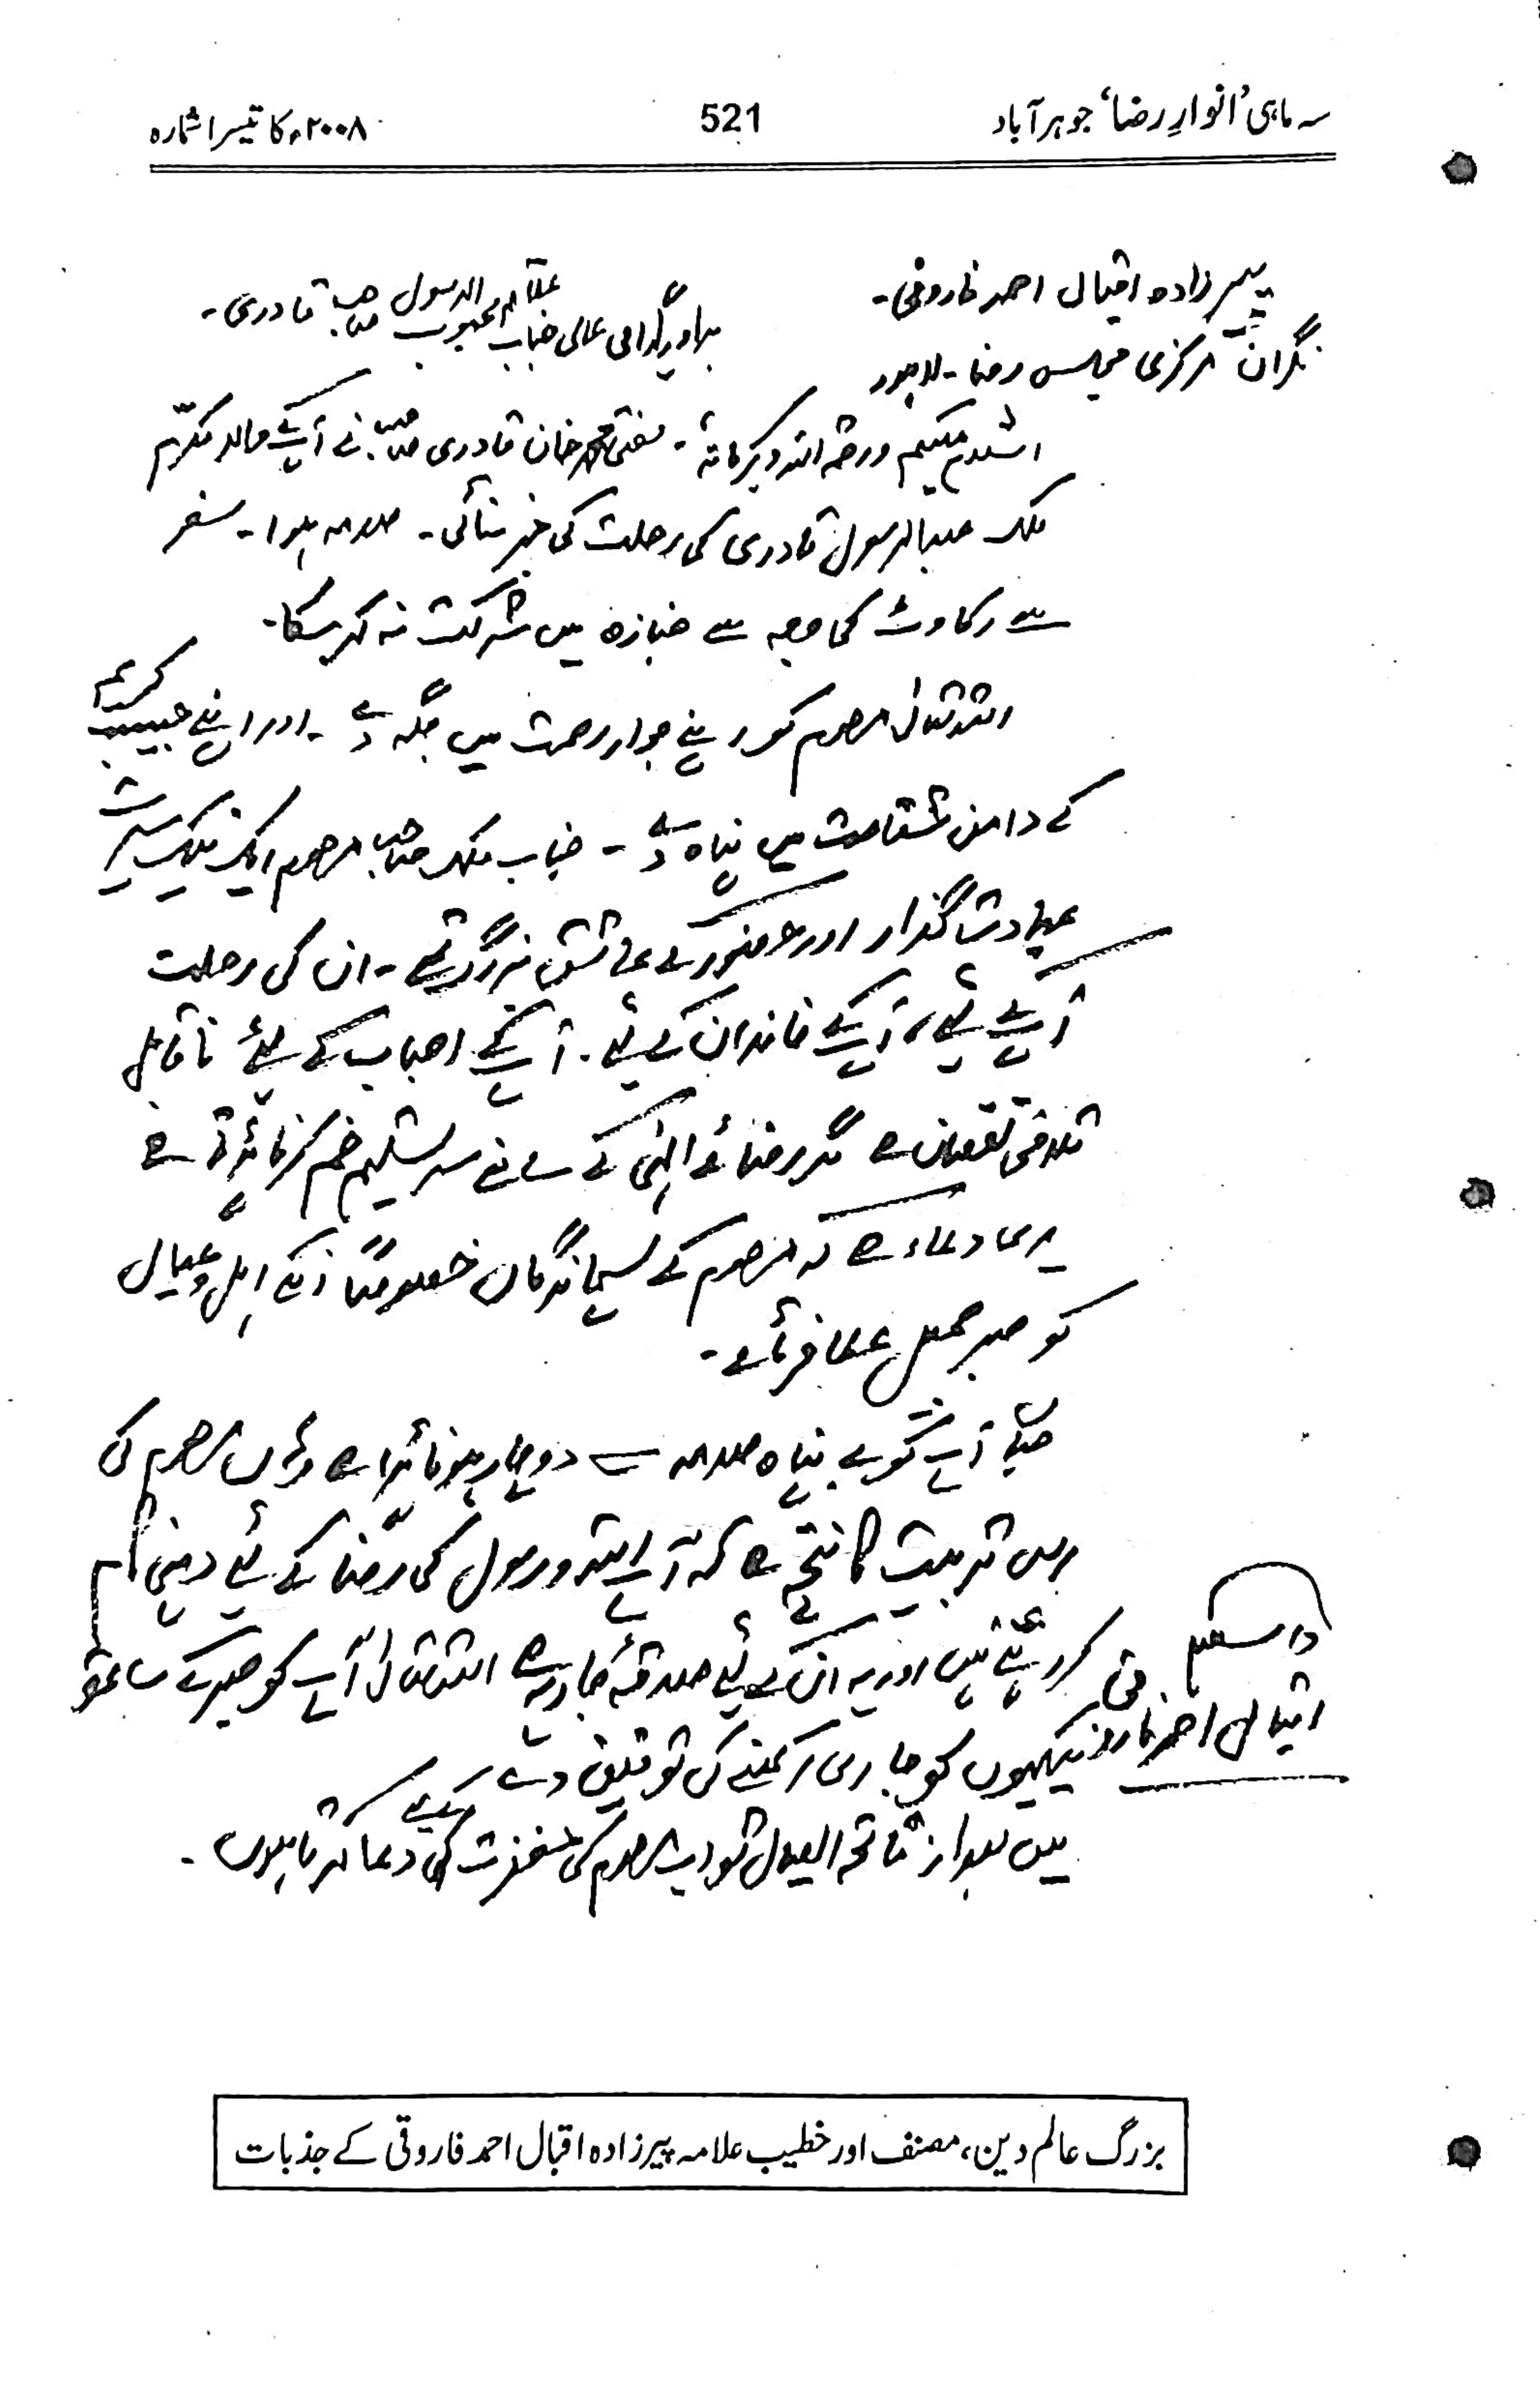 سہ ماہی ’انوارِ رضا‘ جوہر آباد
521
۲۰۰۸ء کا تیسرا شمارہ
پیرزادہ اقبال احمد فاروقی۔
نگران مرکزی مجلس رضا۔ لاہور
برادر گرامی عالی جناب علامہ محبوب الرسول صاحب قادری۔
السلام علیکم ورحمۃ اللہ وبرکاتہٗ۔ مفتی محمد خان قادری صاحب نے آپکے والد مکرّم
ملک عبدالرسول قادری کی رحلت کی خبر سنائی۔ صدمہ ہوا۔ سفر
سے رکاوٹ کی وجہ سے جنازہ میں شرکت نہ کر سکا۔
اللہ تعالٰی مرحوم کو اپنے جوار رحمت میں جگہ دے۔ اور اپنے حبیب کریم
کے دامن شفاعت میں پناہ دے۔ جناب ملک صاحب مرحوم ایک نیک سیرت
عبادت گذار اور حضور کے عاشق بزرگ تھے۔ ان کی رحلت
آپ کے لیے، آپکے خاندان کے لیے۔ آپ کے احباب کے لیئے ناقابل
تلافی نقصان ہے مگر رضائے الٰہی کے سامنے سر تسلیم خم کرنا پڑتا ہے
میری دعاء ہے کہ مرحوم کے پسماندگان خصوصاً انکے اہل و عیال
کو صبر جمیل عطا فرمائے۔
جہاں آپ کو بے پناہ صدمہ سے دوچار ہونا پڑا ہے وہاں مرحوم کی
تربیت کا نتیجہ ہے کہ آپ اللہ و رسول کی رضا کے لیے دینی کام
کر رہے ہیں اور یہ ان کے لیے صدقۂ جاریہ ہے اللہ تعالٰی آپ کو صبر کے ساتھ
نیکیوں کو جاری رکھنے کی توفیق دے
میں بعد از فاتحہ ایصال ثواب مرحوم کی مغفرت کی دعا کرتا ہوں۔
والسلام
اقبال احمد فاروقی
بزرگ عالم دین، مصنف اور خطیب علامہ پیرزادہ اقبال احمد فاروقی کے جذبات